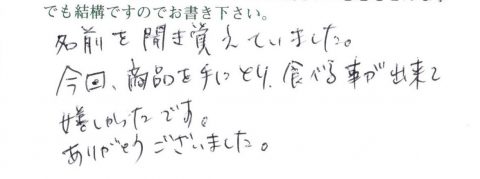 でも結構ですのでお書き下さい。
名前を聞き覚えていました。
今回、商品を手にとり、食べる事が出来て
嬉しかったです。
ありがとうございました。